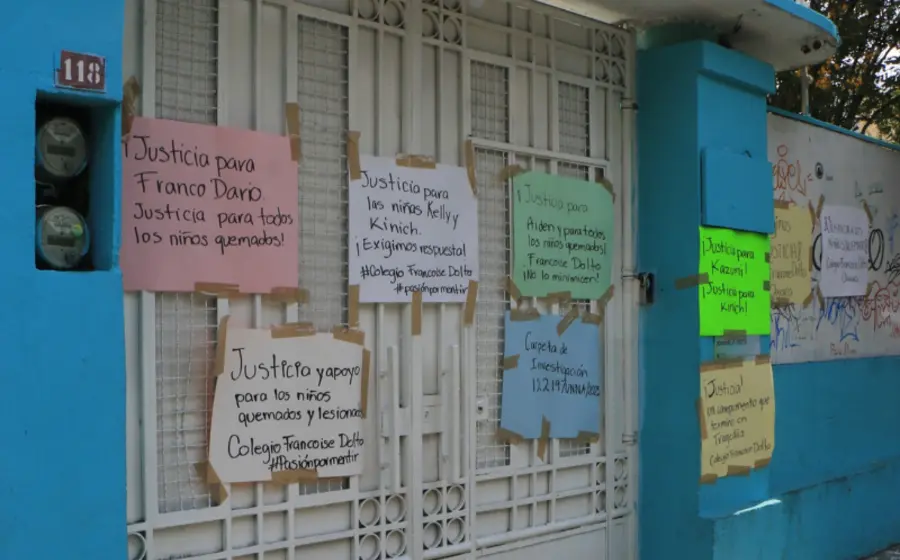 118
¡Justicia para
Franco Dario
Justicia para todos
los niños quemados!
Justicia para
las niñas Kelly y
Kinich.
¡Exigimos respuesta!
#Colegio Francoise Dolto
#pasiónpormentir
¡Justicia para
Aiden y para todos
los niños quemados!
Francoise Dolto
¡No lo minimicen!
Justicia y apoyo
para los niños
quemados y lesionados
Colegio Francoise Dolto
#Pasiónpormentir
Carpeta de
Investigación
¡Justicia para
Kazumi!
¡Justicia para
Kinich!
¡Justicia!
un campamento que
termino en
Tragedia
Colegio Francoise Dolto